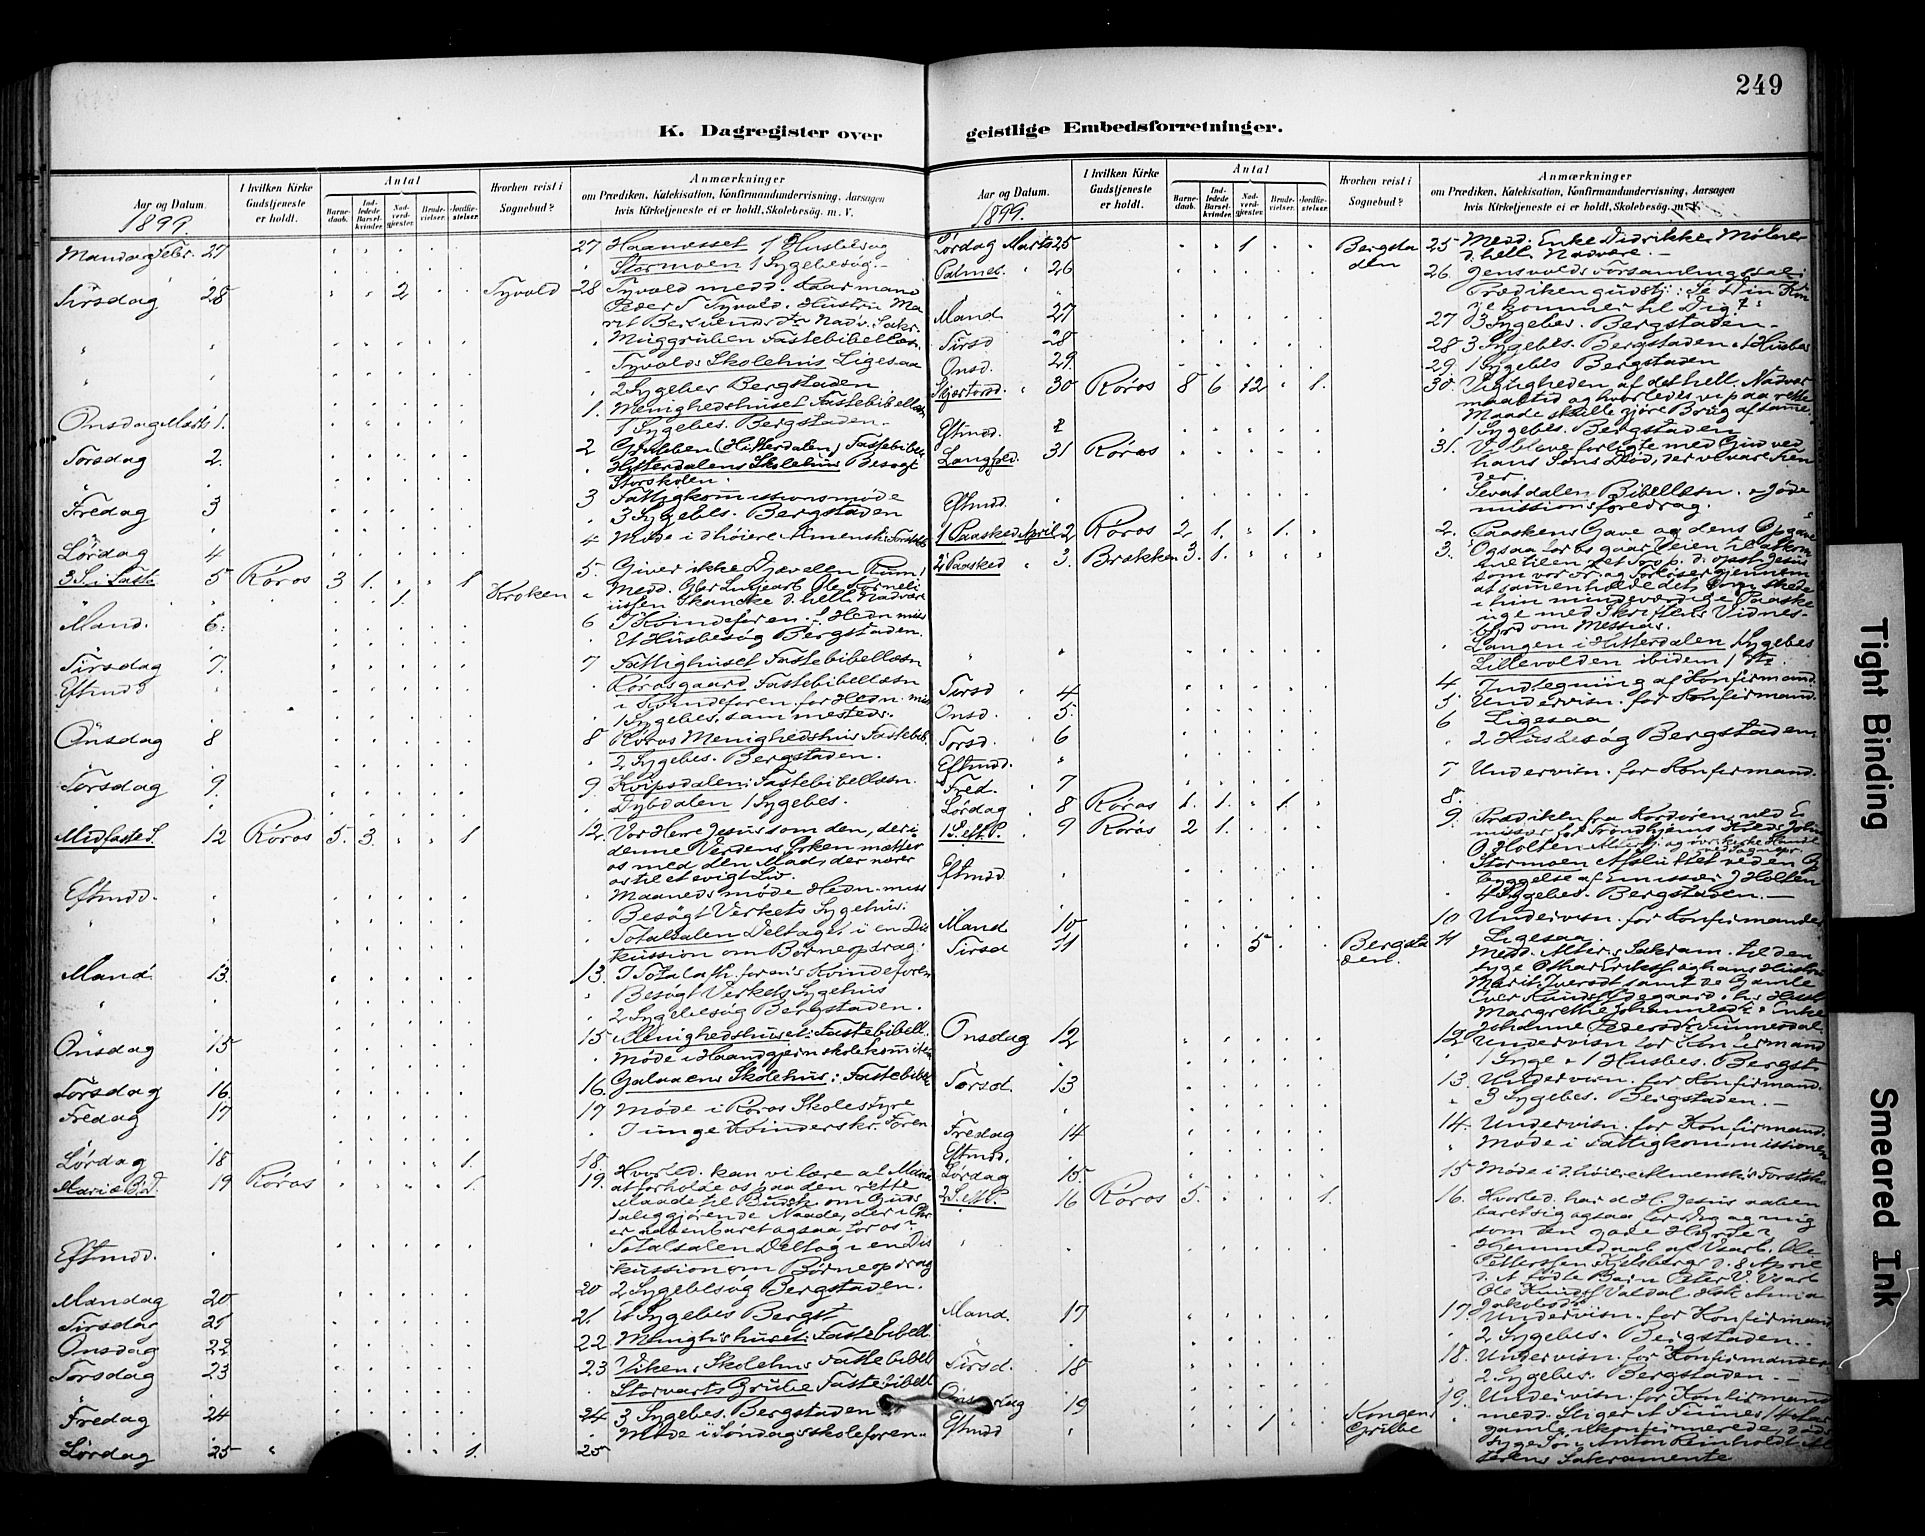 249
K. Dagregister over geistlige Embedsforretninger.
Aar og Datum.
I hvilken Kirke Gudstjeneste er holdt.
Antal
Barnedaab.
Indledede Barselkvinder.
Nadverdgjester.
Brudevielser.
Jordfæstelser.
Hvorhen reist i Sognebud?
Anmærkninger
om Prædiken, Katekisation, Konfirmandundervisning, Aarsagen
hvis Kirketjeneste ei er holdt, Skolebesøg. m. V.
1899.
Mandag Febr. 27 27 Haanesset 1 Husbesøg
Stormoen 1 Sygebesøg.
Tirsdag 28 2 Tyvold 28 Tyvold medd. Kaarmand
Peder Tyvold, Hustru Ma
rit Nadv. Sakr.
Muggruben Fastebibellæsn.
Tyvolds Skolehus Ligesaa
2 Sygebes Bergstaden
Onsdag Marts 1. 1. Menighedshuset Fastebibellæsn
1 Sygebes. Bergstaden.
Torsdag 2. 2 Grubben (Hitterdalen) Fastebibel
Hitterdalens Skolehus Besøgt
Storskolen.
Fredag 3 3 Fattigkommissionsmøde
3 Sygebes. Bergstaden
Lørdag 4 4 Møde i d høiere Almensk:
3 S. i Faste 5 Røros 3 1. 8 5. Giver ikke Djævelen Rum!
1. Kroken Medd. Ole Korneli
ussen Skancke d. hell Nadvere
Mand. 6. 6 I Kvindeforen. f. Hedn miss
Et Husbesøg Bergstaden.
Tirsdag 7. 7 Fattighuset Fastebibellæsn
Eftmdd Rørosgaard Fastebibellæsn
i Kvindeforen. for Hedn. miss
1 Sygebes. sammesteds.
Onsdag 8 8 Røros Menighedshus Fastebib.
2 Sygebes. Bergstaden.
Torsdag 9. 9 Kvipsdalen: Fastebibellæsn.
Dybdalen 1 Sygebes.
Midfaste S. 12 Røros 5. 3. 1 12. Vor Herre Jesus som den, der i
denne Verdens Ørken mætter
os med den Mad, der nærer
os til et evigt Liv.
Eftmdd. Maanedsmøde Hedn. miss
Besøgt Verkets Sygehus.
Totalsalen Deltaget i en Dis
kussion om Børneopdrag.
Mand. 13. 13. I Totalafh. foren's Kvindeforen
Besøgt Verkets Sygehus
2 Sygebesøg Bergstaden.
Onsdag 15 15 Menighedshuset: Fastebibell.
Møde i Haandgjerningsskolekomiteen
Torsdag 16. 16. Galaaens Skolehus: Fastebibel
Fredag 17 17 Møde i Røros Skolestyre
I unge Kvinders kr. Foren
Lørdag 18 1. 18.
Mariæ B. D. 19 Røros 1. 19. Hvorled. kan vi lære af Maria
at forholde os paa den rette
Maade til Budsk. om Guds
saliggjørende Naade, der i Chr
er aabenbaret ogsaa for os?
Eftmdd. Totalsalen Deltog i en Dis
kussion om Børneopdrag
Mandag 20 20 2 Sygebesøg Bergstaden.
Tirsdag 21 21. 6 Sygebes Bergst
Onsdag 22 22 Menighshuset: Fastebibell
Torsdag 23 23 Vikens Skolehus Fastebibell
Storvarts Grube Fastebibell
Fredag 24 24 3 Sygebes. Bergstaden
Møde i Søndagsskoleforen.
Lørdag 25 1. 25
Aar og Datum.
I hvilken Kirke Gudstjeneste er holdt.
Antal
Barnedaab.
Indledede Barselkvinder.
Nadverdgjester.
Brudevielser.
Jordfæstelser.
Hvorhen reist i Sognebud?
Anmærkninger
om Prædiken, Katekisation, Konfirmandundervisning, Aarsagen
hvis Kirketjeneste ei er holdt, Skolebesøg. m. V.
1899.
Lørdag Marts 25 1 Bergstaden 25 Medd. Enke Didrikke Mølmer
d. hell Nadvere.
Palmes. 26 26. Jensvolds Forsamlingssal:
Prædikengudstj: Se Din Kon
ge kommer til Dig!
Mand 27 27 3 Sygebes. Bergstaden.
Tirsd 28 28 3 Sygebes. Bergstaden, 1 Husbes
Onsd. 29 29. 1 Sygebes Bergstaden
Skjærtorsd. 30 Røros 8 6 12 1. 30. Vigtigheden af det hell. Nadver
maaltid og hvorledes vi paa rette
Maade skulle gjøre Brug af samme.
Eftmdd. 1 Sygebes. Bergstaden
Langfrd. 31 Røros 31. Vi bleve forligte med Gud ved
hans Søns Død, der vi vare Fien
der.
Eftmdd. Sevatdalen Bibellæsn. & Jøde
missionsforedrag.
1 Paasked April 2 Røros 2. 1. 1. 2. Paaskens Gave og dens Opgave
2 Paasked 3. Brækken 3. 1. 3. Ogsaa for os gaar Veien til at kom
me til en af Jesus
som vor og Forløser gjennem
at sammenholde det, som skede
i hin mindeværdige Paaske
uge med Skriftens Vidnes
byrd om Messias.
Langen i Hitterdalen 1 Sygebes
Lillevolden ibidem 1 do.
Tirsd 4 4. Indtegning af Konfirmand.
Onsd. 5. 5. Undervisn. for Konfirmand.
Torsd. 6 6 Ligesaa
Eftmdd. 2 Husbesøg Bergstaden
Fred. 7 7 Undervisn. for Konfirmand.
Lørdag 8 Røros 1. 1. 1 8.
1 S. eft. P. 9 Røros 2 1. 9. Prædiken fra Kordøren ved E
missær for Trondhjems Kreds Johan
O Holten
Eftmdd Stormoen Afsluttet ved en O
byggelse af Emissær J Holten
1 Sygebes. Bergstaden.
Mand 10 10 Undervisn. for Konfirmander
Tirsd 11 5 Bergstaden. 11 Ligesaa
Medd. Alter. Sakram. til den
syge Othar Eriksf. og hans Hustru
Marit Iversdt samt de Gamle
Iver Knuds Ødegaard, hs. Hust
Margrethe Johannesdt. & Enke
Johanne Pedersdt
Onsdag 12 12 Undervisn for Konfirmand
1 Syge & 1 Husbes. Bergst.
Torsd. 13 13. Undervisn. for Konfirmand.
3 Sygebes. Bergstaden.
Fredag 14 14. Undervisn. for Konfirmand.
Eftmdd. Møde i Fattigkommissionen
Lørdag 15. 15 Møde i d høiere Almenskls
2 S. eft. P. 16 Røros 5. 1. 16. Hvorled. har d H. Jesus aaben
baret sig ogsaa for Dig og mig
som den gode Hyrde?
Hjemmedaab af Ole
Pettersen Kjelsbergs d. 8 April
d. A fødte Barn Peter
Ole Knuds Valdal Anna
Jakobsdt
Mand. 17 17. Undervisn. for Konfirmand
2 Sygebes. Bergstaden.
Tirsd. 18 18. Undervisn. for Konfirmander
2. Sygebes. Bergstaden.
Onsdag 19 19. Undervisn. for Konfirmand
Eftmdd 1 Kongens Grube medd. 14 Aar
gamle ukonfirmerede, døds
syge Søn Anton Reinholdt Al
terens Sakramente
Tight Binding
Smeared Ink